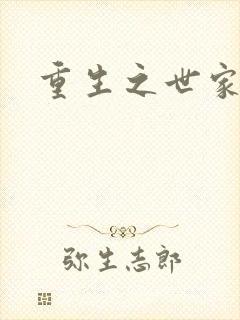 重生之世家
弥生志郎